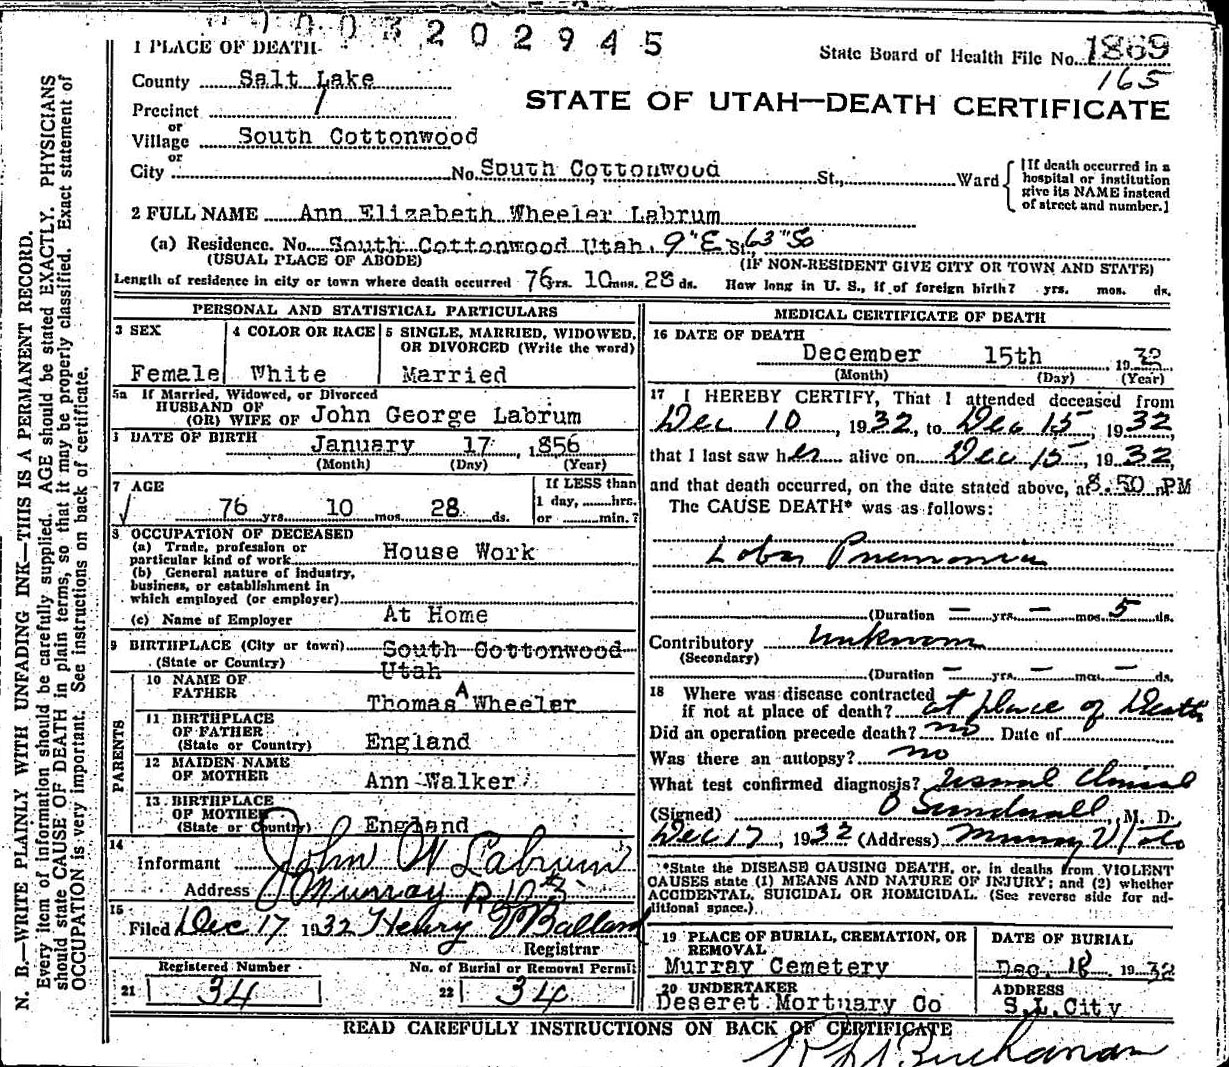 0003202945
1 PLACE OF DEATH
State Board of Health File No. 1869
165
County Salt Lake
STATE OF UTAH—DEATH CERTIFICATE
Precinct 1
or
Village South Cottonwood
or
City No. South Cottonwood St., Ward
[If death occurred in a
hospital or institution
give its NAME instead
of street and number.]
2 FULL NAME Ann Elizabeth Wheeler Labrum
(a) Residence. No. South Cottonwood Utah. 9" E St., 63" So
(USUAL PLACE OF ABODE) (IF NON-RESIDENT GIVE CITY OR TOWN AND STATE)
Length of residence in city or town where death occurred 76 yrs. 10 mos. 28 ds. How long in U. S., if of foreign birth? yrs. mos. ds.
PERSONAL AND STATISTICAL PARTICULARS
3 SEX
Female
4 COLOR OR RACE
White
5 SINGLE, MARRIED, WIDOWED,
OR DIVORCED (Write the word)
Married
5a If Married, Widowed, or Divorced
HUSBAND OF
(OR) WIFE OF John George Labrum
DATE OF BIRTH January 17 , 1856
(Month) (Day) (Year)
7 AGE
76 yrs. 10 mos. 28 ds.
If LESS than
1 day, hrs.
or min.?
8 OCCUPATION OF DECEASED
(a) Trade, profession or
particular kind of work House Work
(b) General nature of industry,
business, or establishment in
which employed (or employer)
(c) Name of Employer At Home
9 BIRTHPLACE (City or town) South Cottonwood
(State or Country) Utah
PARENTS
10 NAME OF
FATHER Thomas A Wheeler
11 BIRTHPLACE
OF FATHER
(State or Country) England
12 MAIDEN NAME
OF MOTHER Ann Walker
13 BIRTHPLACE
OF MOTHER
(State or Country) England
14
Informant John W Labrum
Address Murray R
15
Filed Dec 17 1932 Henry Ballard
Registrar
Registered Number
21 34
No. of Burial or Removal Permit
22 34
MEDICAL CERTIFICATE OF DEATH
16 DATE OF DEATH
December 15th 1932
(Month) (Day) (Year)
17 I HEREBY CERTIFY, That I attended deceased from
Dec 10, 1932, to Dec 15, 1932,
that I last saw her alive on Dec 15, 1932,
and that death occurred, on the date stated above, at 8.50 PM
The CAUSE DEATH* was as follows:
Lobar Pnemonia
(Duration — yrs. — mos. 5 ds.
Contributory Unknown
(Secondary)
(Duration — yrs. — mos. — ds.
18 Where was disease contracted
if not at place of death? at place of Death
Did an operation precede death? no Date of
Was there an autopsy? no
What test confirmed diagnosis? Usual Clinical
(Signed) O Sundwall, M. D.
Dec 17, 1932 (Address) Murray Utah
*State the DISEASE CAUSING DEATH, or, in deaths from VIOLENT
CAUSES state (1) MEANS AND NATURE OF INJURY; and (2) whether
ACCIDENTAL, SUICIDAL OR HOMICIDAL. (See reverse side for ad-
ditional space.)
19 PLACE OF BURIAL, CREMATION, OR
REMOVAL
Murray Cemetery
DATE OF BURIAL
Dec. 18 1932
20 UNDERTAKER
Deseret Mortuary Co
ADDRESS
S.L.City
READ CAREFULLY INSTRUCTIONS ON BACK OF CERTIFICATE
Buchanan
N. B.—WRITE PLAINLY WITH UNFADING INK—THIS IS A PERMANENT RECORD.
Every item of information should be carefully supplied. AGE should be stated EXACTLY. PHYSICIANS
should state CAUSE OF DEATH in plain terms, so that it may be properly classified. Exact statement of
OCCUPATION is very important. See instructions on back of certificate.